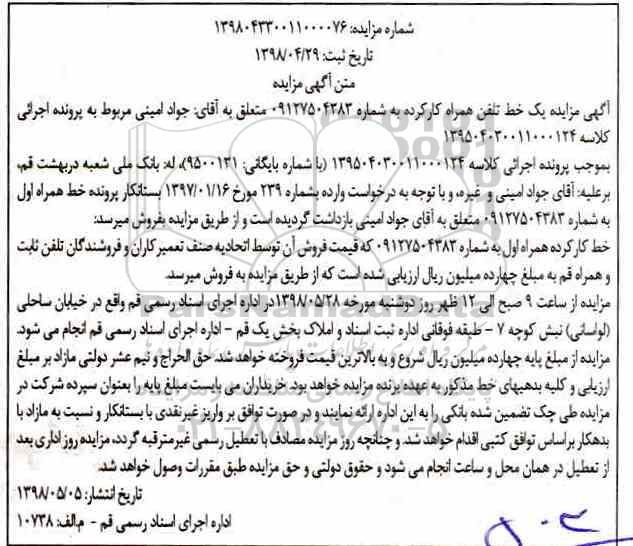 شماره مزایده: ۱۳۹۸۰۴۳۳۰۰۱۱۰۰۰۰۷۶
تاریخ ثبت: ۱۳۹۸/۰۴/۲۹
متن آگهی مزایده
آگهی مزایده یک خط تلفن همراه کارکرده به شماره ۰۹۱۲۷۵۰۴۳۸۳ متعلق به آقای: جواد امینی مربوط به پرونده اجرائی
کلاسه ۱۳۹۵۰۴۰۳۰۰۱۱۰۰۰۱۲۴
بموجب پرونده اجرائی کلاسه ۱۳۹۵۰۴۰۳۰۰۱۱۰۰۰۱۲۴ (با شماره بایگانی: ۹۵۰۰۱۳۱)، له: بانک ملی شعبه دربهشت قم،
برعلیه: آقای جواد امینی و غیره، و با توجه به درخواست وارده بشماره ۲۳۹ مورخ ۱۳۹۷/۰۱/۱۶ بستانکار پرونده خط همراه اول
به شماره ۰۹۱۲۷۵۰۴۳۸۳ متعلق به آقای جواد امینی بازداشت گردیده است و از طریق مزایده بفروش میرسد:
خط کارکرده همراه اول به شماره ۰۹۱۲۷۵۰۴۳۸۳ که قیمت فروش آن توسط اتحادیه صنف تعمیرکاران و فروشندگان تلفن ثابت
و همراه قم به مبلغ چهارده میلیون ریال ارزیابی شده است که از طریق مزایده به فروش میرسد.
مزایده از ساعت ۹ صبح الی ۱۲ ظهر روز دوشنبه مورخه ۱۳۹۸/۰۵/۲۸ در اداره اجرای اسناد رسمی قم واقع در خیابان ساحلی
(لواسانی) نبش کوچه ۷ - طبقه فوقانی اداره ثبت اسناد و املاک بخش یک قم - اداره اجرای اسناد رسمی قم انجام می شود.
مزایده از مبلغ پایه چهارده میلیون ریال شروع و به بالاترین قیمت فروخته خواهد شد. حق الحراج و نیم عشر دولتی مازاد بر مبلغ
ارزیابی و کلیه بدهیهای خط مذکور به عهده برنده مزایده خواهد بود. خریداران می بایست مبلغ پایه را بعنوان سپرده شرکت در
مزایده طی چک تضمین شده بانکی را به این اداره ارائه نمایند و در صورت توافق بر واریز غیرنقدی با بستانکار و نسبت به مازاد با
بدهکار براساس توافق کتبی اقدام خواهد شد. و چنانچه روز مزایده مصادف با تعطیل رسمی غیرمترقبه گردد، مزایده روز اداری بعد
از تعطیل در همان محل و ساعت انجام می شود و حقوق دولتی و حق مزایده طبق مقررات وصول خواهد شد.
تاریخ انتشار: ۱۳۹۸/۰۵/۰۵
اداره اجرای اسناد رسمی قم - م‌الف: ۱۰۷۳۸
ParsNamadData
۰۲۱-۸۸۳۴۹۶۷۰-۵